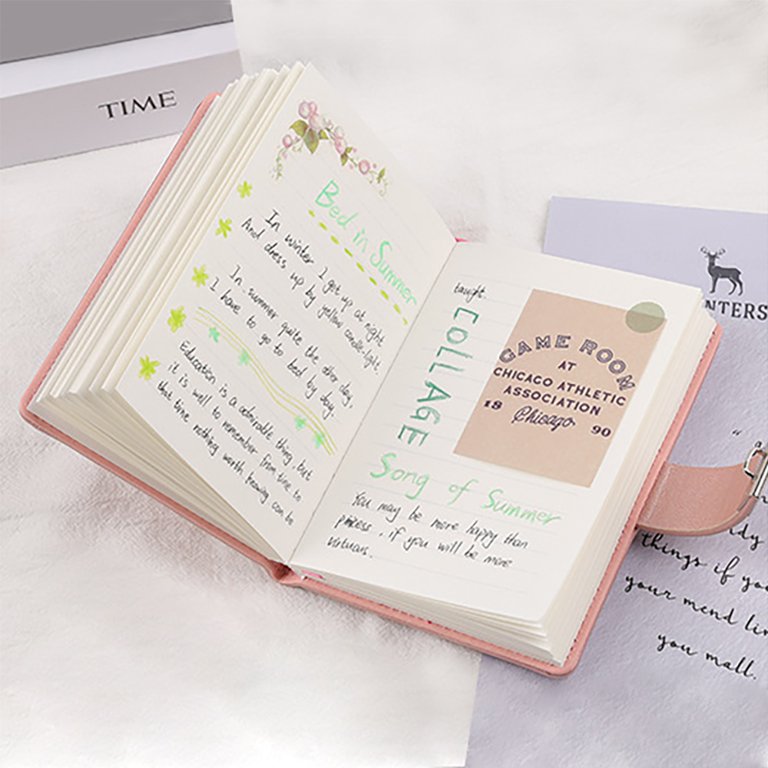 TIME
Bed in Summer
In winter I get up at night
And dress up by yellow candle-light,
In summer quite the other day,
I have to go to bed by day.
Education is a admirable thing, but
it is well to remember from time to
that time nothing worth knowing can be
taught.
COLLAGE
GAME ROOM
AT
CHICACO ATHLETIC
ASSOCIATION
18 Chicago 90
Song of Summer
You may be more happy than
princess, if you will be more
virtuous.
NTERS
things if yo
your mend lin
you mall.